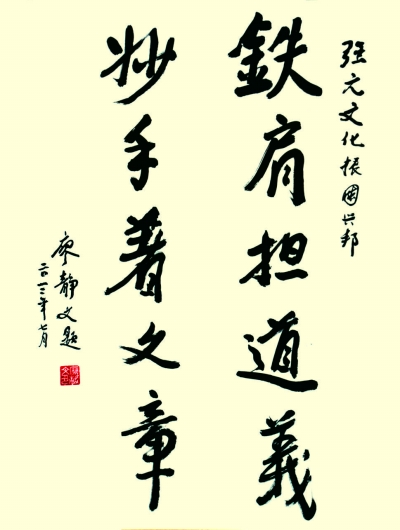 强元文化振國兴邦
鉄肩担道義
妙手著文章
廖静文题
二〇一三年七月